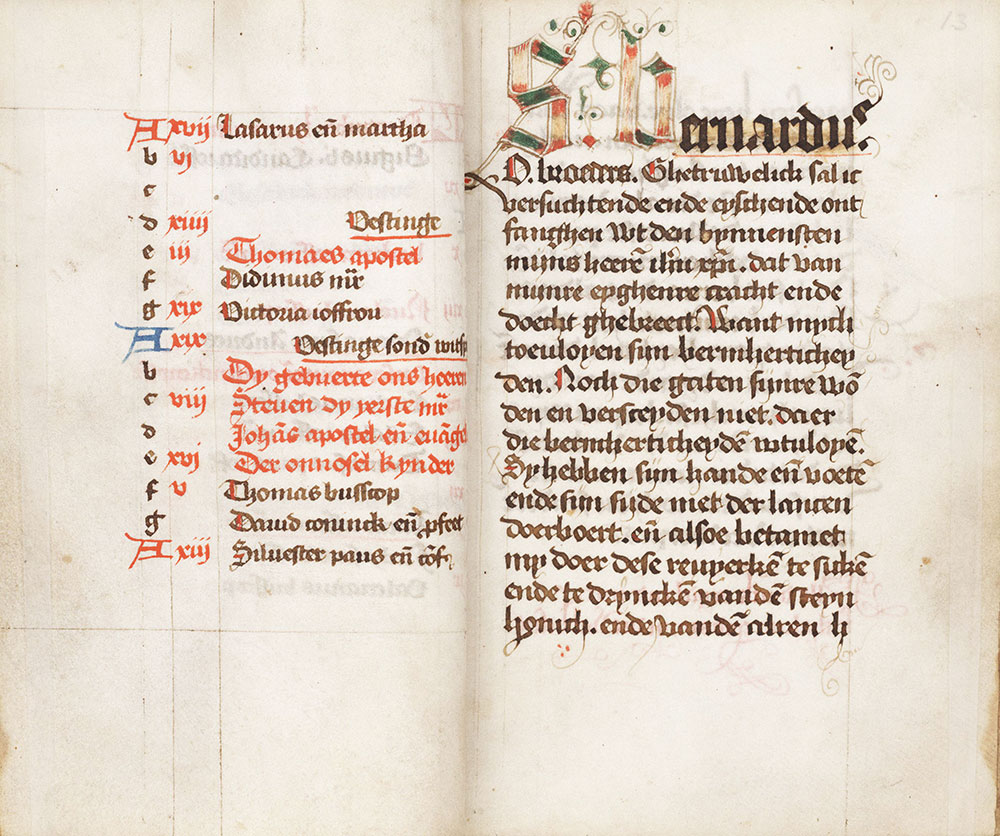 A xvij Lasarus eñ martha
b vj
c
d xiiij Vestinge
e iij Thomaes apostel
f Didimus mr̄
g xix Victoria ioffrou
A xix Vestinge sond
b Dy gebuerte ons heeren
c viij Steuen dy yerste mr̄
d Johãs apostel eñ euãgel
e xvj Der onnosel kynder
f v Thomas busscop
g Dauid coninck eñ pfeet
A xiij Siluester paus eñ cõf
13
S. bernardus
O. broeders. Ghetruwelick sal ic
versuchtende ende eyschende ont
fanghen wt den bynnensten
mijns heerẽ ihũ xp̃i. dat van
mijnre eyghenre cracht ende
doecht ghebreect. Want mych
toeuloyen sijn bermhertichey
den. Noch die gaten sijnre wõ
den en versceyden niet. daer
die bermherticheydẽ wtuloyẽ.
Sy hebben sijn hande eñ voetẽ
ende sijn sijde met der lancen
doerboert. eñ alsoe betamet
my doer dese reuyerkẽ te sukẽ
ende te dryncken vanden steyn
honich. ende vandẽ alren h